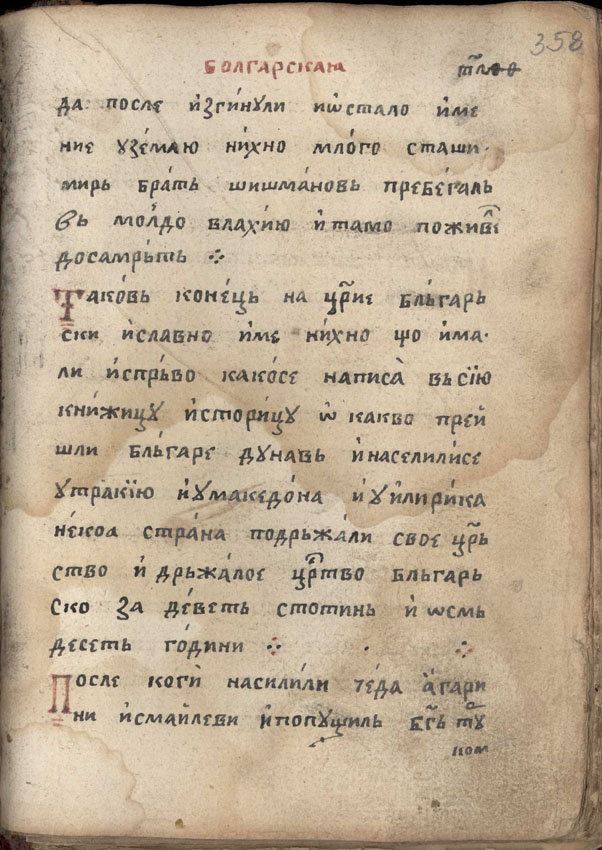 358
БОЛГАРСКАꙖ
да после и́згинꙋли иѡстало и́ме
ние ꙋземаю ни́хно мло́го сташи
мирь брать шишма́новь пребегаль
вь молдо влахи́ю и́тамо поживе
досамрьть ⁘
Тако́вь коне́ць на цр҃ие бль́гарь
ски и́славно и́ме ни́хно що и́ма
ли и́спрьво како́се написа̀ вьсі́ю
кни́жицꙋ и́стори́цꙋ ѿ какво прей
шли бльгаре дꙋнавь и́населили́се
ꙋтракі́ю и́ꙋмакедо́на и́ꙋи́лири́ка
не́коа стра́на подрьжа́ли свое цр҃ь
ство и́дрьжа́лое цр҃тво бльгарь
ско за де́веть стотинь и́ ѡсмь
десеть го́дини ⁘ · ⁘
После коги̇̀ насили́ли те́да а́гари
ни и́смаи́леви и́попꙋщиль бг҃ь тꙋ
ком